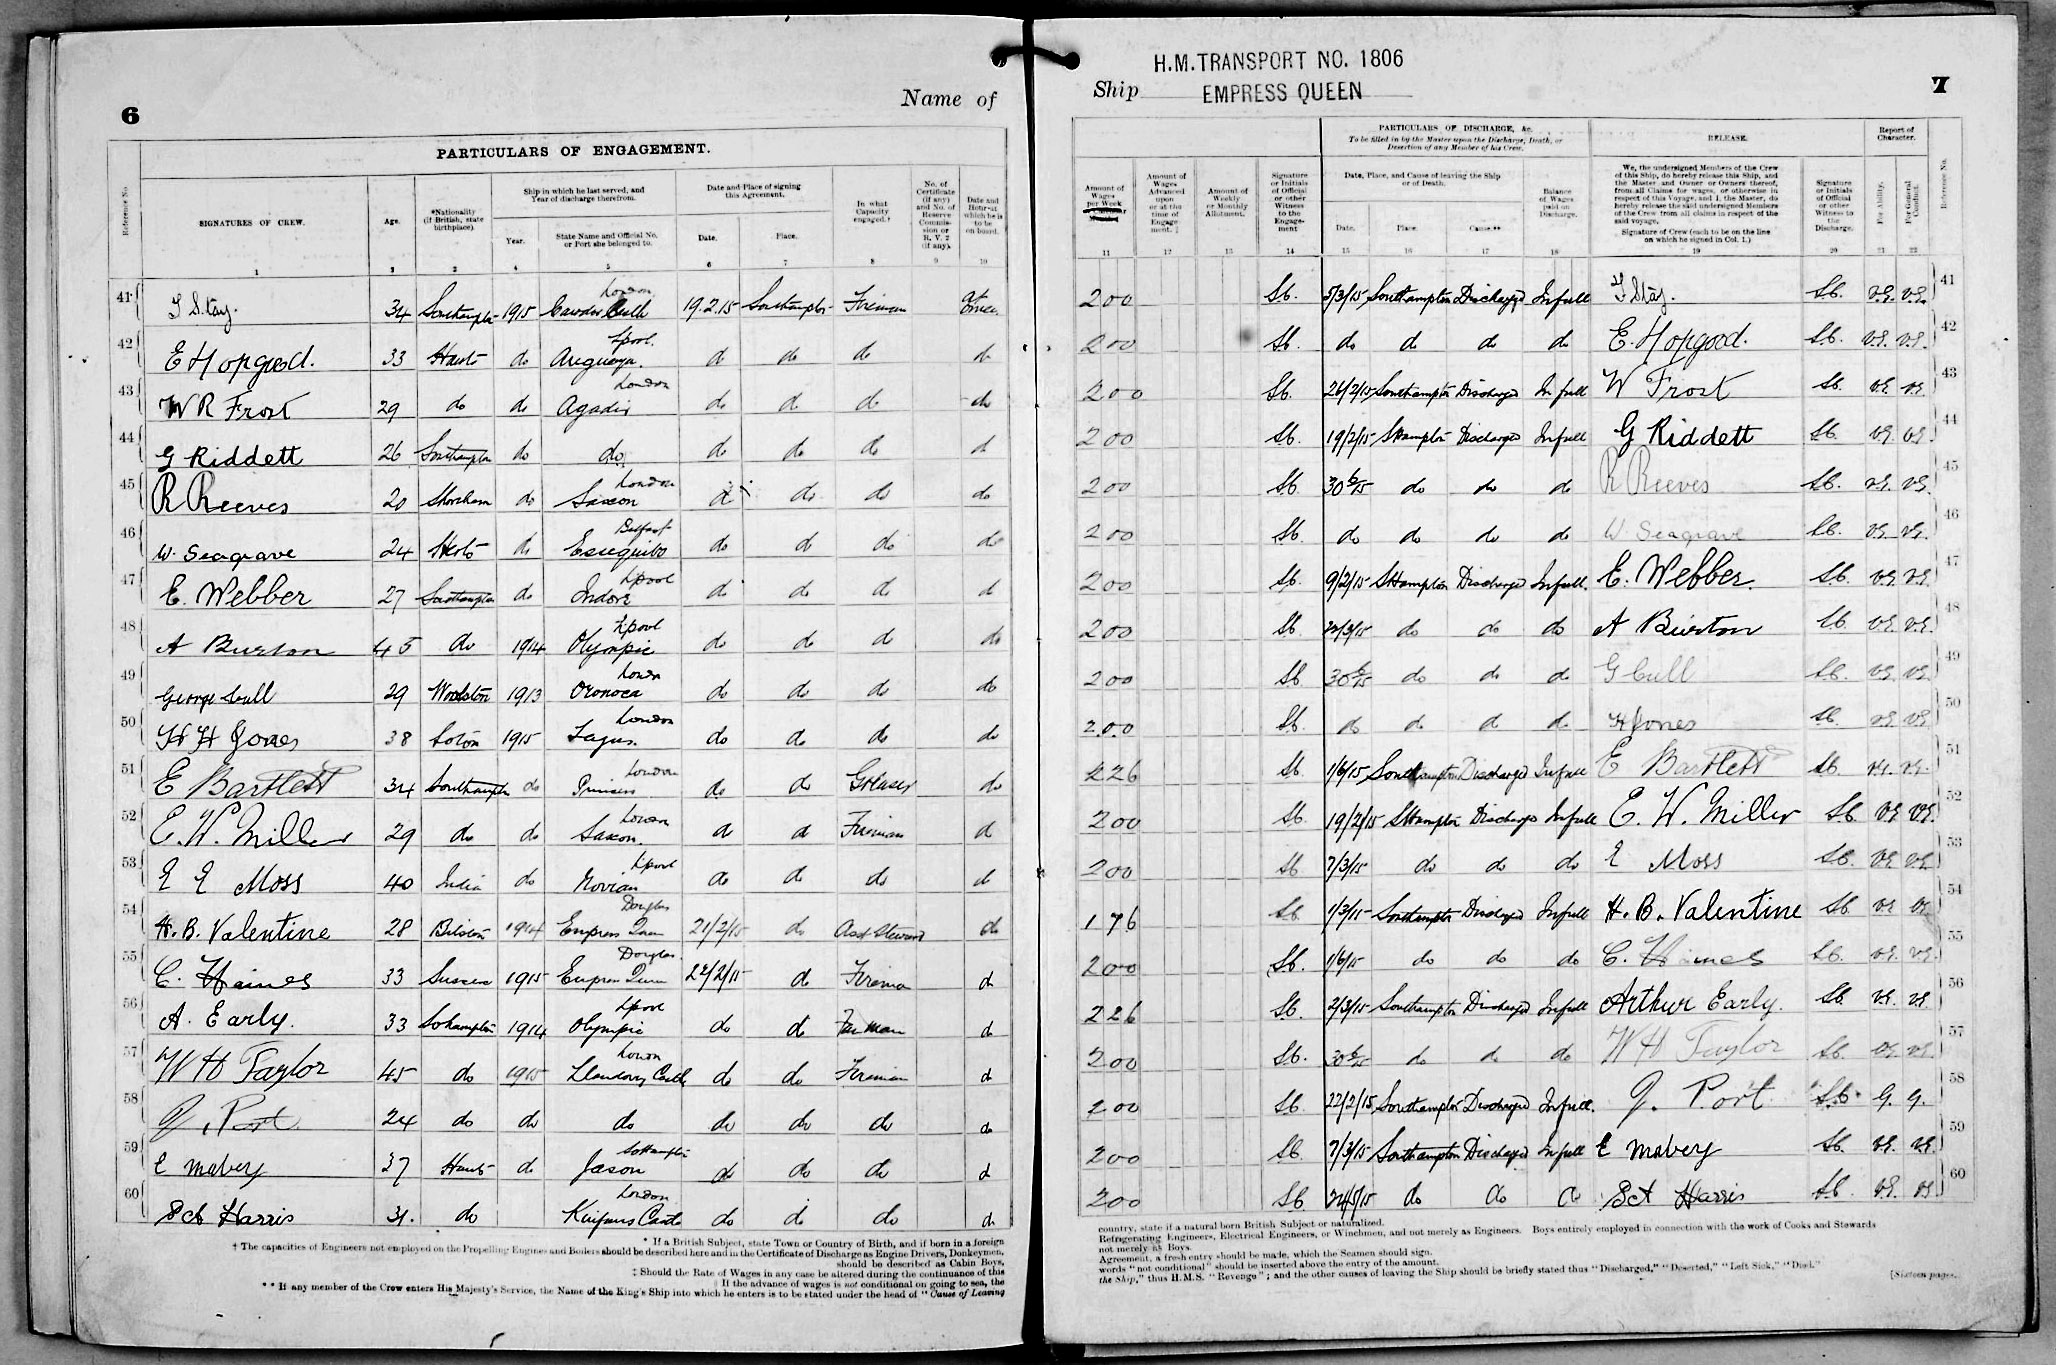 6
Name of
PARTICULARS OF ENGAGEMENT.
Reference No.
SIGNATURES OF CREW.
Age.
*Nationality (if British, state birthplace).
Ship in which he last served, and Year of discharge therefrom.
Year.
State Name and Official No. or Port she belonged to.
Date and Place of signing this Agreement.
Date.
Place.
In what Capacity engaged.†
No. of Certificate (if any) and No. of Reserve Commission or R. V. 2 (if any).
Date and Hour at which he is to be on board.
1 2 3 4 5 6 7 8 9 10
41 T Stay. 34 Southampton 1915 Cawdor Castle London 19.2.15 Southampton Fireman at once
42 E Hopgood. 33 Hants do Araguaya Lpool. do do do do
43 W R Frost 29 do do Agadir London do do do do
44 G Riddett 26 Southampton do do do do do do
45 R Reeves 20 Shoreham do Saxon London do do do do
46 W. Seagrave 24 Herts do Essequibo Belfast do do do do
47 E. Webber 27 Southampton do Indore Lpool do do do do
48 A Burton 45 do 1914 Olympic Lpool do do do do
49 George Cull 29 Woolston 1913 Oronoca London do do do do
50 H H Jones 38 Soton 1915 Tagus. London do do do do
51 E Bartlett 34 Southampton do Princess London do do Greaser do
52 E. W. Miller 29 do do Saxon. London do do Fireman do
53 E E Moss 40 India do Lpool do do do do
54 H. B. Valentine 28 Bilston 1914 Empress Queen Douglas 21/2/15 do Asst Steward do
55 C. Haines 33 Sussex 1915 Empress Queen Douglas 22/2/15 do Fireman do
56 A. Early. 33 Sohampton 1914 Olympic Lpool do do do
57 W H Taylor 45 do 1915 Llandovery Castle London do do Fireman do
58 Port 24 do do do do do do do
59 E Mabey 37 Hants do Jason Sohampton do do do do
60 Harris 31. do Kinfauns Castle London do do do do
* If a British Subject, state Town or Country of Birth, and if born in a foreign
† The capacities of Engineers not employed on the Propelling Engines and Boilers should be described here and in the Certificate of Discharge as Engine Drivers, Donkeymen,
should be described as Cabin Boys,
‡ Should the Rate of Wages in any case be altered during the continuance of this
If the advance of wages is not conditional on going to sea, the
** If any member of the Crew enters His Majesty's Service, the Name of the King's Ship into which he enters is to be stated under the head of "Cause of Leaving
H.M.TRANSPORT NO. 1806
Ship EMPRESS QUEEN
7
Amount of Wages per Week
Amount of Wages Advanced upon or at the time of Engagement.‡
Amount of Weekly or Monthly Allotment.
Signature or Initials of Official or other Witness to the Engagement
PARTICULARS OF DISCHARGE, &c.
To be filled in by the Master upon the Discharge, Death, or Desertion of any Member of his Crew.
Date, Place, and Cause of leaving the Ship or of Death.
Date.
Place.
Cause.**
Balance of Wages paid on Discharge.
RELEASE.
We, the undersigned Members of the Crew of this Ship, do hereby release this Ship, and the Master and Owner or Owners thereof, from all Claims for wages, or otherwise in respect of this Voyage, and I, the Master, do hereby release the undersigned Members of the Crew from all claims in respect of the said voyage.
Signature of Crew (each to be on the line on which he signed in Col. 1.)
Signature or Initials of Official or other Witness to the Discharge.
Report of Character.
For Ability.
For General Conduct.
Reference No.
11 12 13 14 15 16 17 18 19 20 21 22
200 Sb. 5/3/15 Southampton Discharged In full T Stay. Sb. V.G. V.G. 41
200 Sb. do do do do E. Hopgood. Sb. V.G. V.G. 42
200 Sb. 26/2/15 Southampton Discharged In full W Frost Sb. VG VG 43
200 Sb. 19/2/15 SHampton Discharged In full G Riddett Sb. VG VG. 44
200 Sb. 30/6/15 do do do R Reeves Sb. VG. VG. 45
200 Sb. do do do do W. Seagrave Sb. VG. VG. 46
200 Sb. 9/2/15 SHampton Discharged In full. E. Webber. Sb. VG VG. 47
200 Sb. do do do A Burton Sb. VG. VG. 48
200 Sb 30/6/15 do do do G Cull Sb. VG VG. 49
200 Sb. do do do do H Jones Sb. VG VG 50
226 Sb. 1/6/15 Southampton Discharged In full E Bartlett Sb VG. VG. 51
200 Sb. 19/2/15 SHampton Discharged In full E. W. Miller Sb VG VG. 52
200 Sb 7/3/15 do do do E Moss Sb. VG VG 53
176 Sb. 1/3/15 Southampton Discharged In full H. B. Valentine Sb. VG VG. 54
200 Sb. 1/6/15 do do do C. Haines Sb. VG. VG. 55
226 Sb. 2/3/15 Southampton Discharged In full Arthur Early. Sb. VG. VG 56
200 Sb. 30/6/15 do do do W H Taylor Sb. VG VG. 57
200 Sb. 22/2/15 Southampton Discharged In full. Port Sb. G. G. 58
200 Sb. 7/3/15 Southampton Discharged In full E Mabey Sb. VG. VG. 59
200 Sb. do do do Harris Sb. VG. VG 60
country, state if a natural born British Subject or naturalized.
Refrigerating Engineers, Electrical Engineers, or Winchmen, and not merely as Engineers. Boys entirely employed in connection with the work of Cooks and Stewards
not merely as Boys.
Agreement, a fresh entry should be made, which the Seamen should sign.
words "not conditional" should be inserted above the entry of the amount.
the Ship," thus H.M.S. "Revenge"; and the other causes of leaving the Ship should be briefly stated thus "Discharged," "Deserted," "Left Sick," "Died."
[Sixteen pages.